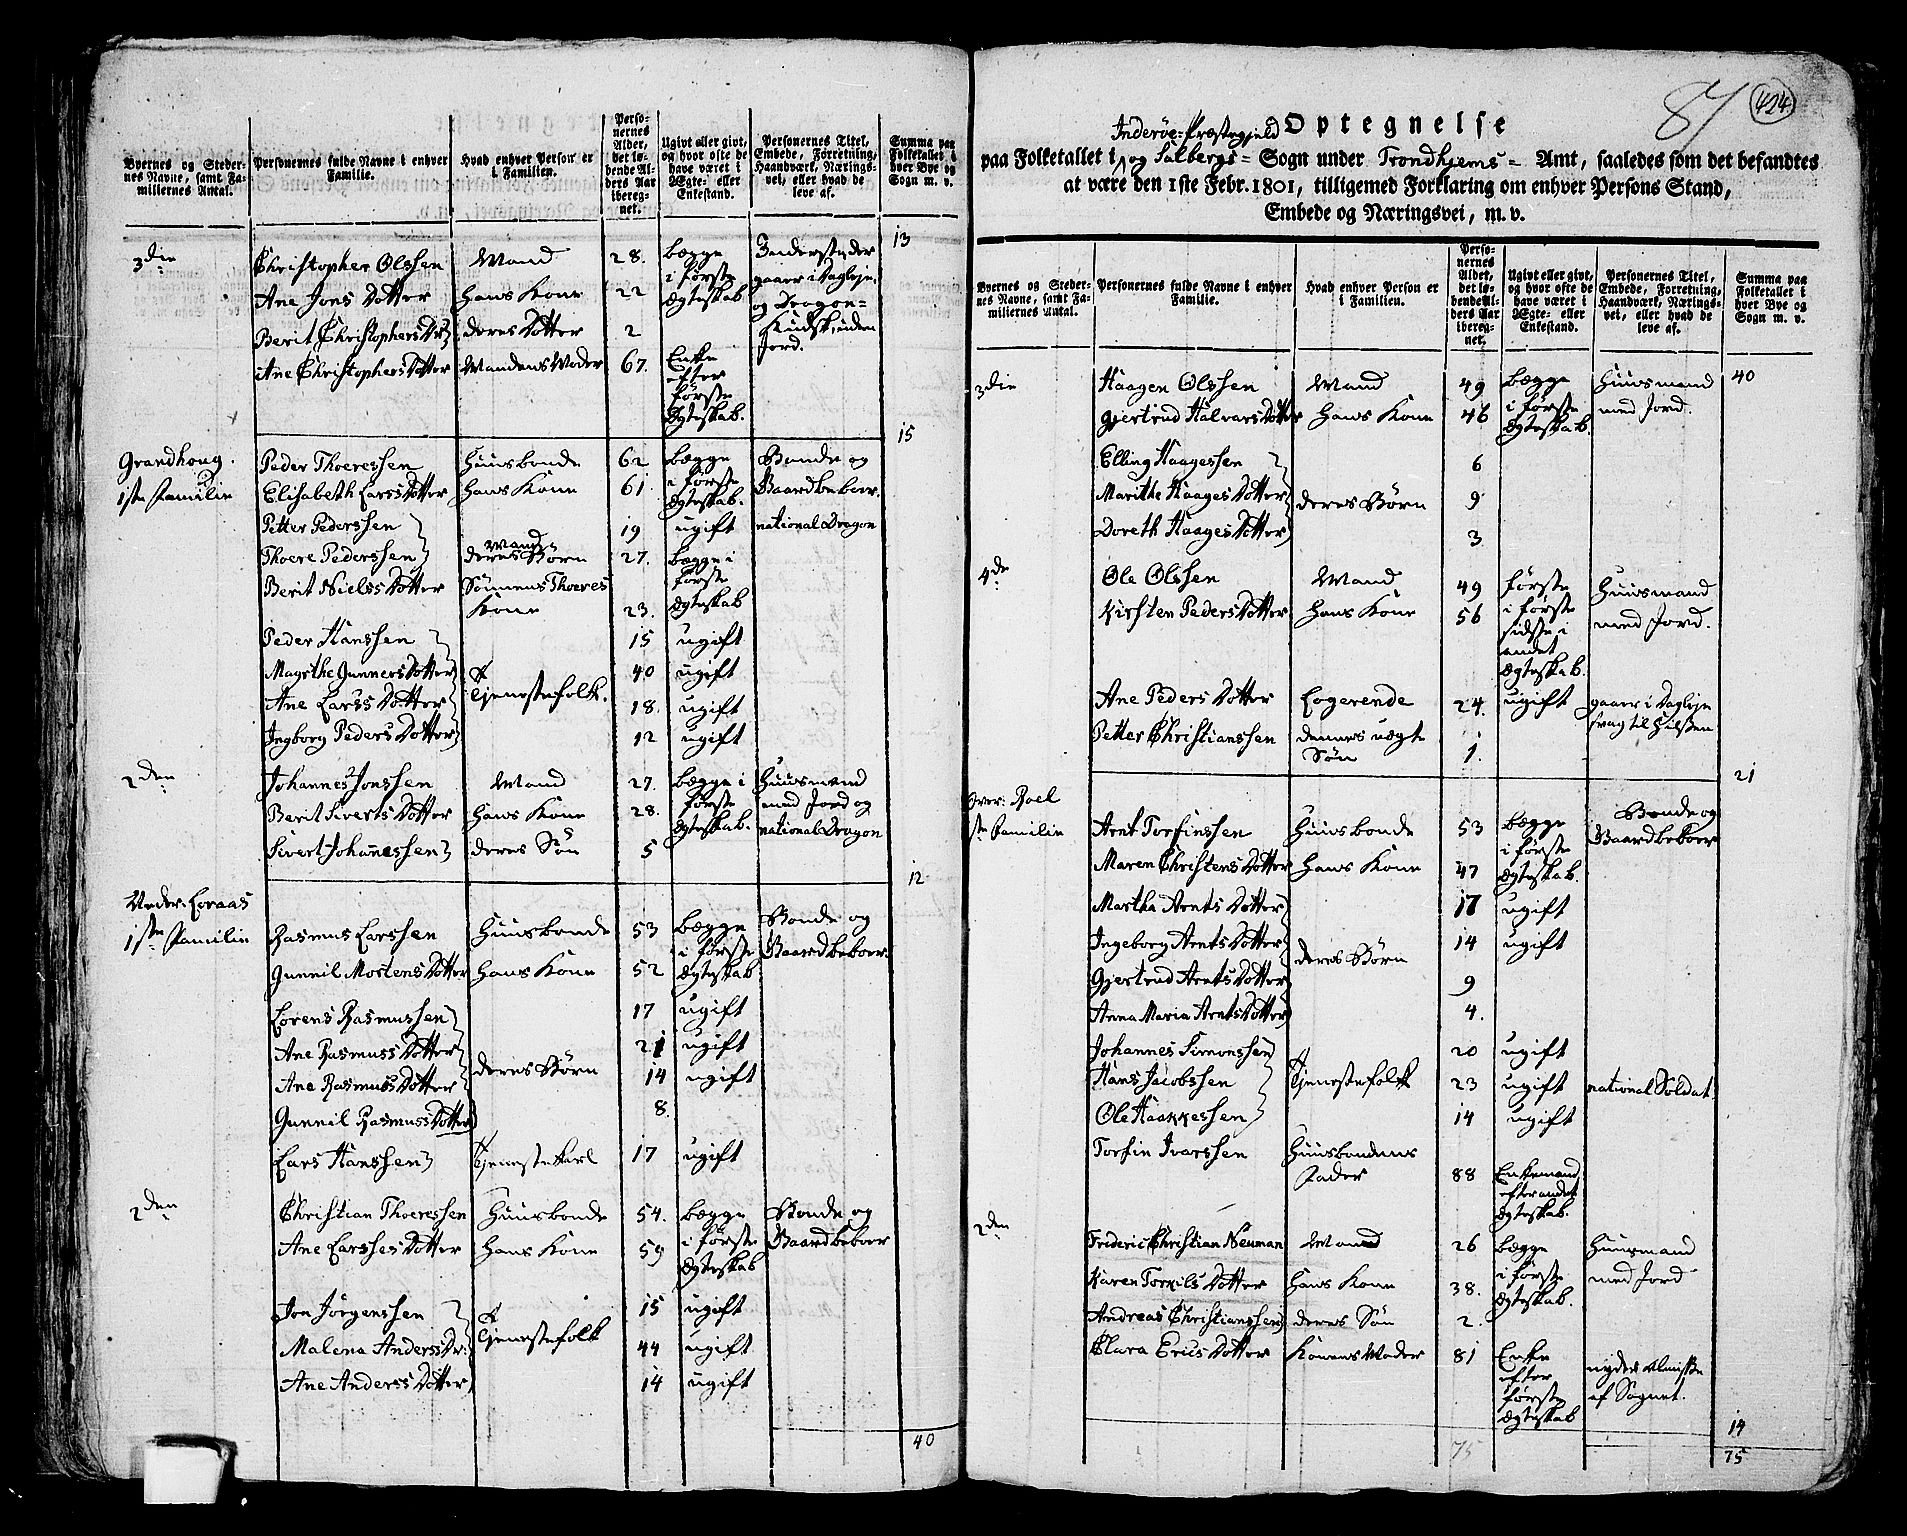 Byernes og Steder-
nes Navne, samt Fa-
miliernes Antal.
Personernes fulde Navne i enhver
Familie.
Hvad enhver Person er
i Familien.
Perso-
nernes
Alder,
det lø-
bende Al-
ders Aar
ibereg-
net.
Ugivt eller givt,
og hvor ofte de
have været i
Ægte- eller
Enkestand.
Personernes Titel,
Embede, Forretning,
Haandværk, Nærings-
vei, eller hvad de
leve af.
Summa paa
Folketallet i
hver Bye og
Sogn m. v.
13
3die Christopher Olssen Mand 28. begge Inderster der
i første gaaer i Dagleje
Ane Jons Dotter hans Kone 22 Ægteskab og Dragon
Berit Christophers Dr deres Dotter 2
Jord.
Ane Christophers Dotter Mandens Moder 67. Enke
efter
første
Ægteskab.
15
Grandhoug. Peder Thoressen Huusbonde 62 begge Bonde og
1ste Familie Elisabeth Larss Dotter hans Kone 61 i første Gaardbeboer.
Ægteskab.
Petter Pederssen 19 ugift national Dragon
Thore Pederssen deres Børn 27. begge i
første
Berit Niels Dotter Sønnens Thores
Kone 23. Ægteskab
Peder Hanssen 15 ugift
Magrthe Gunners Dotter 40 ugift
Ane Larss Dotter Tjenestefolk. 18. ugift
Ingborg Peders Dotter 12 ugift
2den Johannes Jonssen Mand 27. begge i Huusmand
Berit Siverts Dotter hans Kone 28. første med Jord og
Ægteskab. national Dragon
Sivert Johannessen deres Søn 5
12
Neder: Loraas
1ste Familie Rasmus Larssen Huusbonde 53 begge Bonde og
i første Gaardbeboer.
Gunnil Mortens Dotter hans Kone 52 Ægteskab
Lorens Rasmussen 17 ugift
Ane Rasmuss Dotter 21 ugift
Ane Rasmuss Dotter deres Børn 14 ugift
Gunnil Rasmuss Dotter 8.
Lars Hanssen Tjenestekarl 17 ugift
2den Christian Thoressen Huusbonde 54. begge Bonde og
Ane Larsses Dotter hans Kone 59 i første Gaardbeboer
Ægteskab
Jon Jørgenssen 15 ugift
Malena Anderss Dr: Tjenestefolk 44 ugift
Ane Anderss Dotter 14 ugift
40
87 424
Optegnelse
Inderøe-Præstegjeld
paa Folketallet i og Salbergs = Sogn under Trondhjems = Amt, saaledes som det befandtes
at være den 1ste Febr. 1801, tilligemed Forklaring om enhver Persons Stand,
Embede og Næringsvei, m. v.
Byernes og Steder-
nes Navne, samt Fa-
miliernes Antal.
Personernes fulde Navne i enhver
Familie.
Hvad enhver Person er
i Familien.
Perso-
nernes
Alder,
det lø-
bende Al-
ders Aar
ibereg-
net.
Ugivt eller givt,
og hvor ofte de
have været i
Ægte- eller
Enkestand.
Personernes Titel,
Embede, Forretning,
Haandværk, Nærings-
vei, eller hvad de
leve af.
Summa paa
Folketallet i
hver Bye og
Sogn m. v.
40
3die Haagen Olssen Mand 49 begge Huusmand
Gjertrud Halvars Dotter hans Kone 46 i første med Jord.
Ægteskab.
Elling Haagessen 6
Marithe Haages Dotter deres Børn 9
Doreth Haages Dotter 3
4de Ole Olssen Mand 49 første Huusmand
Kirsten Peders Dotter hans Kone 56 i første med Jord.
sidste i
andet
Ægteskab.
Ane Peders Dotter Logerende 24. ugift gaaer i Dagleje
Petter Christianssen dennes uægte
Søn 1.
21
Over: Roel
1ste Familie Arnt Torfinssen Huusbonde 53 begge Bonde og
i første Gaardbeboer
Maren Christens Dotter hans Kone 47 Ægteskab.
Martha Arnts Dotter 17 ugift
Ingeborg Arnts Dotter 14 ugift
deres Børn
Gjertrud Arnts Dotter 9
Anna Maria Arnts Dotter 4.
Johannes Simonssen 20 ugift
Hans Jacobssen Tjenestefolk 23 ugift national Soldat.
Ole Haakkessen 14 ugift
Torfin Ivarssen Huusbondens
Fader 88 Enkemand
efter andet
Ægteskab.
2den Frideric Christian Neuman Mand 26 begge Huusmand
Karen Torkils Dotter hans Kone 38. i første med Jord
Ægteskab.
Andreas Christianssen deres Søn 2.
Clara Erics Dotter Konens Moder 81 Enke nyder Almisse
efter af Sognet.
første
Ægteskab
14
75 75